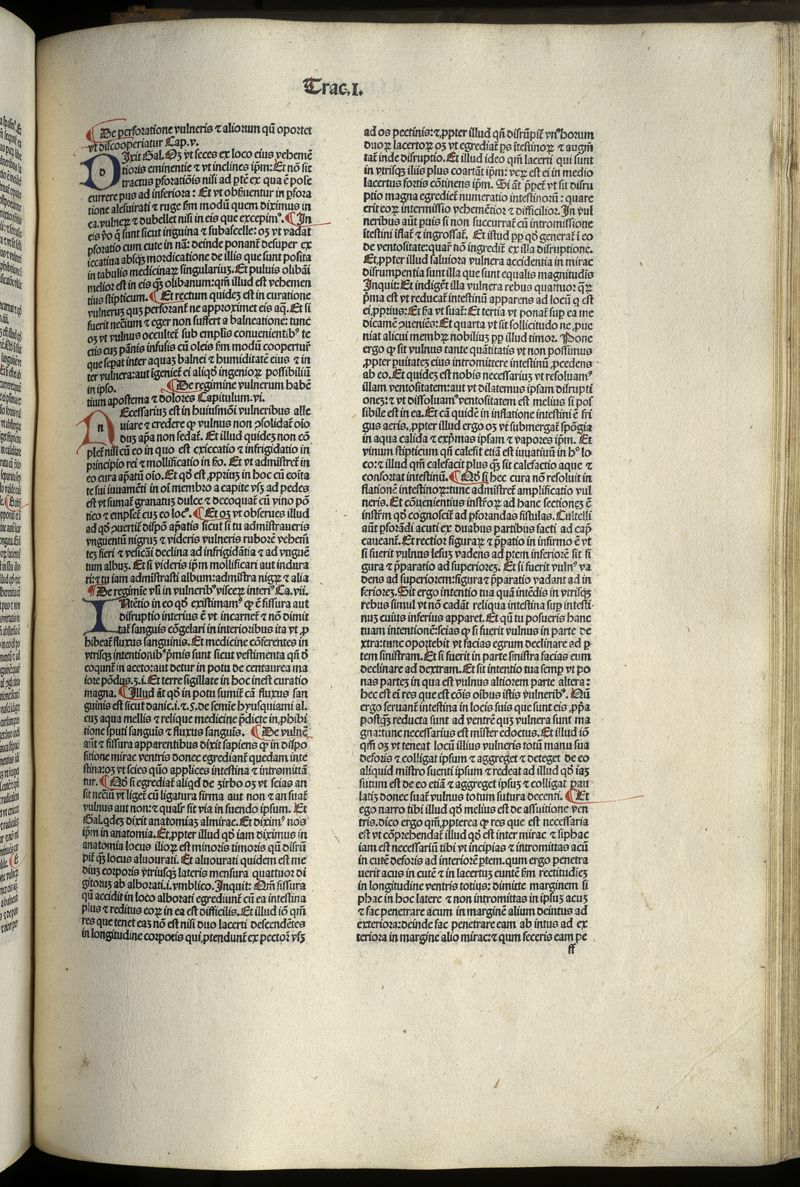 Trac.I.
De perforatione vulneris ⁊ aliorum qñ oportet
vt discooperiatur Cap.v.
Dixit Gal. Oꝫ vt feces ex loco eius vehemẽ
tioris eminentie ⁊ vt inclines ip̃m: Et nõ sit
tractus pforatiõis nisi ad ptẽ ex qua ẽ posse
currere pus ad inferiora: Et vt obseruentur in pfora
tione alesuirati ⁊ ruge fm modũ quem diximus in
ea. vulneꝝ ⁊ dubellet nisi in eis que excepimꝰ. In
eis ṽo q̃ sunt sicut inguina ⁊ subascelle: oꝫ vt vadat
pforatio cum cute in nã: deinde ponant̃ desuper ex
iccatiua absqꝫ mordicatione de illis que sunt posita
in tabulis medicinaꝝ singulariũ. Et puluis olibãi
melior est in eis qꝫ olibanum: qm̃ illud est vehemen
tius stipticum. Et rectum quideꝫ est in curatione
vulneruꝫ quꝫ perforant̃ ne approximet eis aq̃. Et si
fuerit necium ⁊ eger non suffert a balneatione: tunc
oꝫ vt vulnus occultet̃ sub emplis conuenientibꝰ te
ctis cuꝫ pãnis infusis cũ oleis fm modũ coopertur̃
que sepat inter aquaꝫ balnei ⁊ humiditatẽ eius ⁊ in
ter vulnera: aut igeniet̃ ei aliqd̃ ingenioꝝ possibiliũ
in ipso. De regimine vulnerum habẽ
tium apostema ⁊ dolores Capitulum.vi.
Necessarius est in huiusmõi vulneribus alle
uiare ⁊ credere ꝙ vulnus non ꝯsolidat̃ oĩo
duꝫ ap̃a non sedat̃. Et illud quideꝫ non cõ
plet̃ nisi cũ eo in quo est exiccatio ⁊ infrigidatio in
principio rei ⁊ mollificatio in ẽo. Et vt admistret̃ in
eo cura ap̃atũ oĩo. Et qd̃ est ꝓprius in hoc cũ eoĩta
te sui iuuamẽti in oĩ membro a capite vsqꝫ ad pedes
est vt sumat̃ granatuꝫ dulce ⁊ decoquat̃ cũ vino põ
tico ⁊ emplet̃ cuꝫ eo locꝰ. Et oꝫ vt obserues illud
ad qd̃ ꝯuertit̃ dispõ ap̃atis sicut si tu admistraueris
vnguentũ nigruꝫ ⁊ videris vulneris ruborẽ vehem̃
tez fieri ⁊ vesicãi declina ad infrigidãtia ⁊ ad vnguẽ
tum albuꝫ. Et si videris ip̃m mollificari aut indura
ri: ⁊ tu iam admistrasti album: admistra nigꝝ ⁊ alia
De regimĩe vl̃i in vulneribꝰ visceꝝ interiꝰ Ca.vii.
Intẽtio in eo qd̃ existimamꝰ ꝙ ẽ fissura aut
disruptio interius ẽ vt incarnet̃ ⁊ nõ dimit
tat̃ sanguis cõgelari in interioribus ita vt ꝓ
hibeat̃ fluxus sanguinis. Et medicine cõferentes in
vtrisqꝫ intentionibꝰ p̃mis sunt sicut vestimenta qñ d̃
coqunt̃ in aceto: aut detur in potu de centaurea ma
iore põdus.ʒ.i. Et terre sigillate in hoc inest curatio
magna. Illud aũt qd̃ in potu sumit̃ cã fluxus san
guinis est sicut danic.i.⁊.ʒ. de semĩe hyusquiami al.
cuꝫ aqua mellis ⁊ relique medicine p̃dicte in ꝓhibi
tione sputi sanguis ⁊ fluxus sanguis. De vulnẽ
aũt ⁊ fissura apparentibus dixit sapiens ꝙ in dispo
sitione mirac ventris donec egrediant̃ quedam inte
stina: oꝫ vt scies qũo applices intestina ⁊ intromittã
tur. Qd̃ si egrediat̃ aliqd̃ de zirbo oꝫ vt scias an
sit neciũ vt liget̃ cũ ligatura firma aut non ⁊ an suat̃
vulnus aut non: ⁊ qualr̃ sit via in suendo ipsum. Et
Gal. qdeꝫ dixit anatomiaꝫ almirac. Et diximꝰ nos
ip̃m in anatomia. Et ꝓpter illud qd̃ iam diximus in
anatomia locus ilioꝝ est minoris timoris qñ disrũ
pit̃ qꝫ locus aluourati. Et aluourati quidem est me
diuꝫ corporis vtriusqꝫ lateris mensura quattuor di
gitoruꝫ ab alborati.i. vmblico. Inquit: Qm̃ fissura
qũ accidit in loco alborati egrediunt̃ cũ ea intestina
plus ⁊ reditus eoꝝ in ea est difficilis. Et illud iõ qm̃
res que tenet eaꝫ nõ est nisi duo lacerti descendẽtes
in longitudine corporis qui ꝓtendunt̃ ex pector̃ vsqꝫ
ad os pectinis: ⁊ ꝓpter illud qñ disrũpit̃ vnꝰ horum
duoꝝ lacertoꝝ oꝫ vt egrediat̃ ps ĩtestinoꝝ ⁊ augm̃
tat̃ inde disruptio. Et illud ideo qm̃ lacerti qui sunt
in vtrisqꝫ iliis plus coartãt ip̃m: veꝝ est ei in medio
lacertus fortis cõtinens ip̃m. Si aũt ꝓpet̃ vt sit disru
ptio magna egrediet̃ numeratio intestinorũ: quare
erit eoꝝ intermissio vehemẽtior ⁊ difficilior. In vul
neribus aũt puis si non succurrat̃ cũ intromissione
ĩtestini iflat̃ ⁊ ingrossat̃. Et istud ꝓp qd̃ generat̃ ĩ eo
de ventositate: quar̃ nõ ingredit̃ ex illa disruptione.
Et ꝓpter illud saluiora vulnera accidentia in mirac
disrumpentia sunt illa que sunt equalis magnitudis
Inquit: Et indiget̃ illa vulnera rebus quattuor: q̃ꝝ
p̃ma est vt reducat̃ intestinũ apparens ad locũ q̃ est
ei, ꝓprius: Et ẽa vt suat̃: Et tertia vt ponat̃ sup ea me
dicamẽ ꝯueniẽs: Et quarta vt sit sollicitudo ne ꝓue
niat alicui membroꝝ nobilius ꝓp illud timor. Pone
ergo ꝙ sit vulnus tante quãtitatis vt non possimus
ꝓpter puitateꝫ eius intromittere intestinũ ꝓcedens
ab eo. Et quideꝫ est nobis necessarius vt resoluamꝰ
illam ventositatem: aut vt dilatemus ipsam disrupti
oneꝫ: ⁊ vt dissoluamꝰ ventositatem est melius si pos
sibile est in ea. Et cã quidẽ in inflatione intestini ẽ fri
gus aeris. ꝓpter illud ergo oꝫ vt submergat̃ spõgia
in aqua calida ⁊ exp̃mas ipsam ⁊ vapores ip̃m. Et
vinum stipticum qñ calefit etiã est iuuatiuũ in hꝰ lo
co: ⁊ illud qm̃ calefacit plus qꝫ sit calefactio aque ⁊
confortat intestinũ. Qd̃ si hec cura nõ resoluit in
flationẽ intestinoꝝ: tunc admistret̃ amplificatio vul
neris. Et cõuenientius instr̃oꝝ ad hanc sectioneꝫ ẽ
instr̃m qd̃ cognoscit̃ ad pforandas fistulas. Cultelli
aũt ꝓfõradi acuti ex duabus partibus facti ad cap̃
caueant̃. Et rectior siguraꝝ ⁊ p̃patio in infirmo ẽ vt
si fuerit vulnus lesuꝫ vadens ad ptem inferiorẽ sit si
gura ⁊ p̃paratio ad superioreꝫ. Et si fuerit vulnꝰ va
dens ad superiorem: sigura ⁊ p̃patio vadant ad in
ferioreꝫ. Sit ergo intentio tua quã intẽdis in vtrisqꝫ
rebus simul vt nõ cadãt reliqua intestina sup intesti
nuꝫ cuius inferius apparet. Et qñ tu posueris hanc
tuam intentionẽ: scias ꝙ si fuerit vulnus in parte de
xtra: tunc oportebit vt facias egrum declinare ad p
tem sinistram. Et si fuerit in parte sinistra facias eum
declinare ad dextram. Et sit intentio tua semp vt po
nas parteꝫ in qua est vulnus altiorem parte altera:
hec est ei res que est cõis oĩbus istis vulneribꝰ. Qũ
ergo seruant̃ intestina in locis suis que sunt eis ꝓp̃a
postqꝫ reducta sunt ad ventrẽ qũꝫ vulnera sunt ma
gna: tunc necessarius est mister edoctus. Et illud iõ
qm̃ oꝫ vt teneat locũ illius vulneris totũ manu sua
deforis ⁊ colligat ipsum ⁊ aggreget ⁊ deteget de eo
aliquid mistro suenti ipsum ⁊ redeat ad illud qd̃ iaꝫ
sutum est de eo etiã ⁊ aggreget ipsuꝫ ⁊ colligat pau
latiꝫ donec suat̃ vulnus totum sutura decenti. Et
ego narro tibi illud qd̃ melius est de assuitione ven
tris. dico ergo qm̃ ꝓpterea ꝙ res que est necessaria
est vt cõprehendat̃ illud qd̃ est inter mirac ⁊ siphac
iam est necessariũ tibi vt incipias ⁊ intromittas acũ
in cutẽ deforis ad interiorẽ ptem. qum ergo penetra
uerit acus in cutẽ ⁊ in lacertuꝫ euntẽ fm rectitudieꝫ
in longitudine ventris totius: dimitte marginem si
phac in hoc latere ⁊ non intromittas in ipsuꝫ acuꝫ
⁊ fac penetrare acum in marginẽ alium deintus ad
exteriora: deinde fac penetrare eam ab intus ad ex
teriora in margine alio mirac: ⁊ qum feceris eam pe
ff